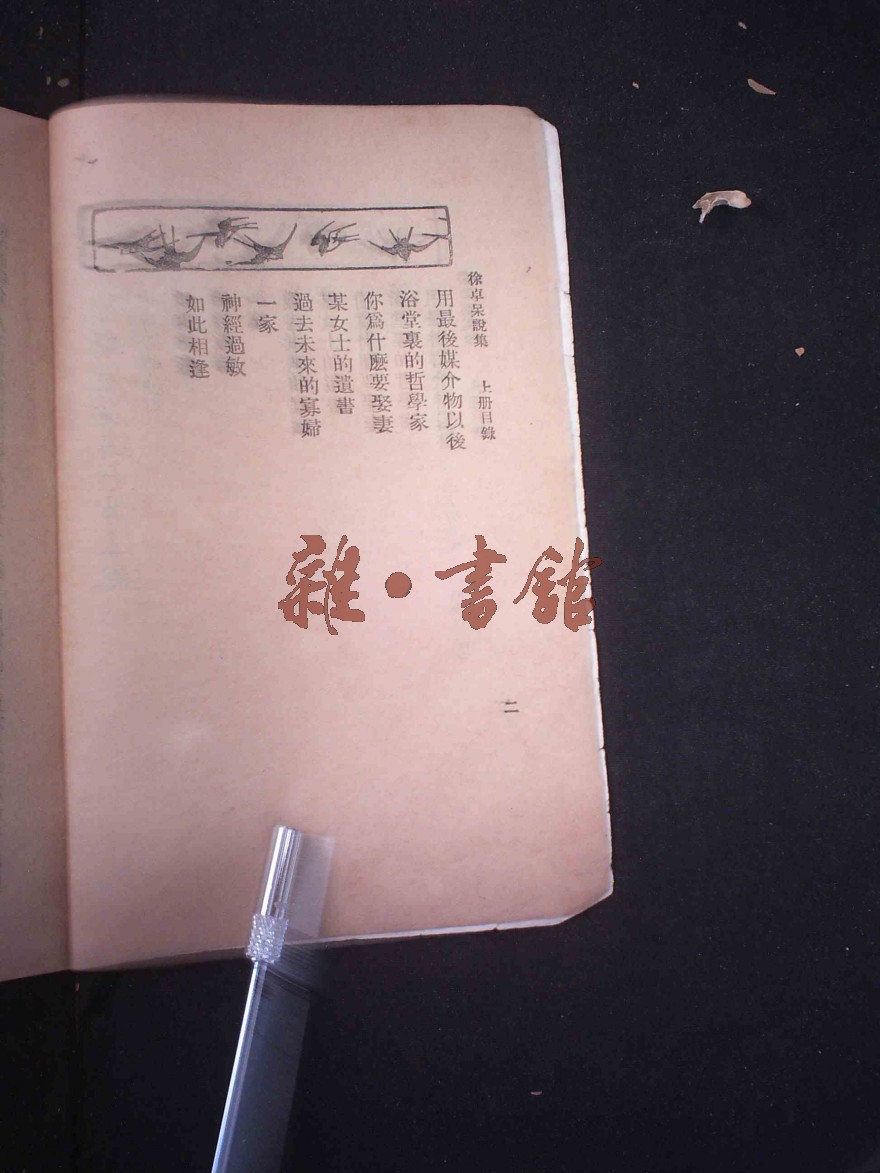 徐卓呆說集 上册目錄
用最後媒介物以後
浴堂裏的哲學家
你爲什麽要娶妻
某女士的遺書
過去未來的寡婦
一家
神經過敏
如此相逢
二
雜·書館